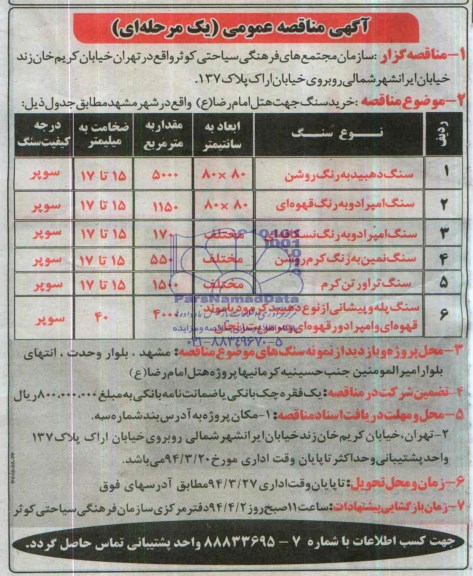 آگهی مناقصه عمومی (یک مرحله‌ای)
۱- مناقصه گزار : سازمان مجتمع های فرهنگی سیاحتی کوثر واقع در تهران خیابان کریم خان زند
خیابان ایرانشهر شمالی روبروی خیابان اراک پلاک ۱۳۷.
۲- موضوع مناقصه : خرید سنگ جهت هتل امام رضا (ع) واقع در شهر مشهد مطابق جدول ذیل:
ردیف نوع سنگ ابعاد به سانتیمتر مقدار به متر مربع ضخامت به میلیمتر درجه کیفیت سنگ
۱ سنگ دهبید به رنگ روشن ۸۰ × ۸۰ ۵۰۰۰ ۱۵ تا ۱۷ سوپر
۲ سنگ امپرادو به رنگ قهوه ای ۸۰ × ۸۰ ۱۱۵۰ ۱۵ تا ۱۷ سوپر
۳ سنگ امپرادو به رنگ نسکافه ای مختلف ۱۷۰ ۱۵ تا ۱۷ سوپر
۴ سنگ نمین به رنگ کرم روشن مختلف ۵۵۰ ۱۵ تا ۱۷ سوپر
۵ سنگ تراورتن کرم مختلف ۱۵۰۰ ۱۵ تا ۱۷ سوپر
۶ سنگ پله و پیشانی از نوع دهبید کرم و
قهوه ای و امپرادور قهوه ای و ۴۰۰۰ ۴۰ سوپر
ParsNamadData
۰۲۱-۸۸۳۴۹۶۷۰-۵
۳- محل پروژه و بازدید از نمونه سنگ های موضوع مناقصه: مشهد ، بلوار وحدت ، انتهای
بلوار امیرالمومنین جنب حسینیه کرمانیها پروژه هتل امام رضا (ع)
۴- تضمین شرکت در مناقصه: یک فقره چک بانکی یا ضمانت نامه بانکی به مبلغ ۸۰۰.۰۰۰.۰۰۰ ریال
۵- محل و مهلت دریافت اسناد مناقصه: ۱- مکان پروژه به آدرس بند شماره سه.
۲- تهران، خیابان کریم خان زند خیابان ایرانشهر شمالی روبروی خیابان اراک پلاک ۱۳۷
واحد پشتیبانی و حداکثر تا پایان وقت اداری مورخ ۹۴/۳/۲۰ می باشد.
۶- زمان و محل تحویل: تا پایان وقت اداری ۹۴/۳/۲۷ مطابق آدرسهای فوق
۷- زمان بازگشایی پیشنهادات: ساعت ۱۱ صبح روز ۹۴/۴/۲ دفتر مرکزی سازمان فرهنگی سیاحتی کوثر
جهت کسب اطلاعات با شماره ۷ - ۸۸۸۳۳۶۹۵ واحد پشتیبانی تماس حاصل گردد.